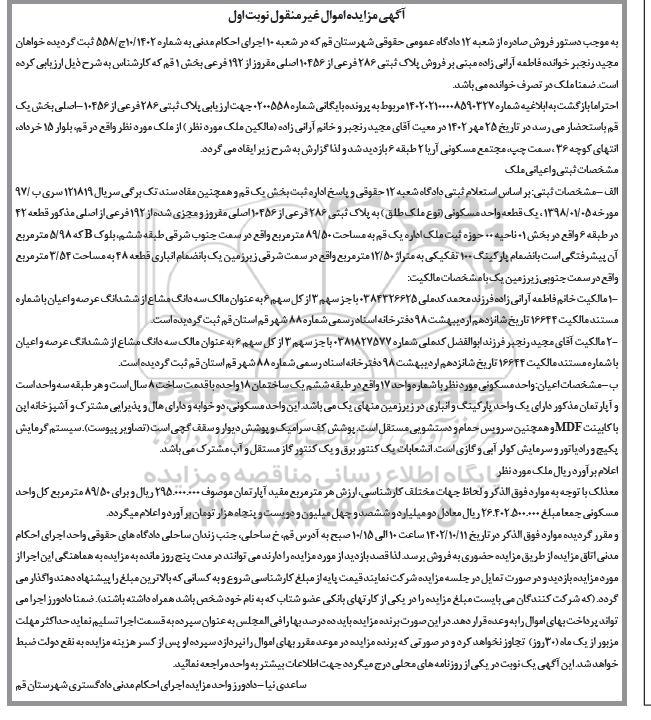 آگهی مزایده اموال غیر منقول نوبت اول
به موجب دستور فروش صادره از شعبه ۱۲ دادگاه عمومی حقوقی شهرستان قم که در شعبه ۱۰ اجرای احکام مدنی به شماره ۱۰/۱۴۰۲ج/۵۵۸ ثبت گردیده خواهان
مجید رنجبر خوانده فاطمه آرانی زاده مبنی بر فروش پلاک ثبتی ۲۸۶ فرعی از ۱۰۴۵۶ اصلی مفروز از ۱۹۲ فرعی بخش ۱ قم که کارشناس به شرح ذیل ارزیابی کرده
است. ضمنا ملک در تصرف خوانده می باشد.
احتراما بازگشت به ابلاغیه شماره ۱۴۰۲۰۲۱۰۰۰۰۸۵۹۰۳۲۷ مربوط به پرونده بایگانی شماره ۰۲۰۰۵۵۸ جهت ارزیابی پلاک ثبتی ۲۸۶ فرعی از ۱۰۴۵۶-اصلی بخش یک
قم باستحضار می رسد در تاریخ ۲۵ مهر ۱۴۰۲ در معیت آقای مجید رنجبر و خانم آرانی زاده (مالکین ملک مورد نظر ) از ملک مورد نظر واقع در قم، بلوار ۱۵ خرداد،
انتهای کوچه ۳۶ ، سمت چپ، مجتمع مسکونی آریا ۲ طبقه ۶ بازدید شد و لذا گزارش به شرح زیر ایفاد می گردد.
مشخصات ثبتی و اعیانی ملک
الف -مشخصات ثبتی: بر اساس استعلام ثبتی دادگاه شعبه ۱۲ حقوقی و پاسخ اداره ثبت بخش یک قم و همچنین مفاد سند تک برگی سریال ۱۲۱۸۱۹ سری ب /۹۷
مورخه ۱۳۹۸/۰۱/۰۵ ، یک قطعه واحد مسکونی (نوع ملک طلق) به پلاک ثبتی ۲۸۶ فرعی از ۱۰۴۵۶ اصلی مفروز و مجزی شده از ۱۹۲ فرعی از اصلی مذکور قطعه ۴۲
در طبقه ۶ واقع در بخش ۰۱ ناحیه ۰۰ حوزه ثبت ملک اداره یک قم به مساحت ۸۹/۵۰ مترمربع واقع در سمت جنوب شرقی طبقه ششم، بلوک B که ۵/۹۸ مترمربع
آن پیشرفتگی است بانضمام پارکینگ ۱۰۰ تفکیکی به متراژ ۱۲/۵۰ مترمربع واقع در سمت شرقی زیرزمین یک بانضمام انباری قطعه ۴۸ به مساحت ۳/۵۴ مترمربع
واقع در سمت جنوبی زیرزمین یک با مشخصات مالکیت:
۱-مالکیت خانم فاطمه آرانی زاده فرزند محمد کدملی ۰۳۸۴۳۲۶۶۲۵ با جز سهم ۳ از کل سهم ۶ به عنوان مالک سه دانگ مشاع از ششدانگ عرصه و اعیان با شماره
مستند مالکیت ۱۶۶۴۴ تاریخ شانزدهم اردیبهشت ۹۸ دفترخانه اسناد رسمی شماره ۸۸ شهر قم استان قم ثبت گردیده است.
۲- مالکیت آقای مجید رنجبر فرزند ابوالفضل کدملی شماره ۰۳۸۱۸۲۷۵۷۷ با جز سهم ۳ از کل سهم ۶ به عنوان مالک سه دانگ مشاع از ششدانگ عرصه و اعیان
با شماره مستند مالکیت ۱۶۶۴۴ تاریخ شانزدهم اردیبهشت ۹۸ دفترخانه اسناد رسمی شماره ۸۸ شهر قم استان قم ثبت گردیده است.
ب-مشخصات اعیان: واحد مسکونی مورد نظر با شماره واحد ۱۷ واقع در طبقه ششم یک ساختمان ۱۸ واحده با قدمت ساخت ۸ سال است و هر طبقه سه واحد است
و آپارتمان مذکور دارای یک واحد پارکینگ و انباری در زیرزمین منهای یک می باشد. این واحد مسکونی، دو خوابه و دارای هال و پذیرایی مشترک و آشپزخانه اپن
با کابینت MDF و همچنین سرویس حمام و دستشویی مستقل است. پوشش کف سرامیک و پوشش دیوار و سقف گچی است (تصاویر پیوست). سیستم گرمایش
پکیج و رادیاتور و سرمایش کولر آبی و گازی است. انشعابات یک کنتور برق و یک کنتور گاز مستقل و آب مشترک می باشد.
اعلام برآورد ریال ملک مورد نظر
معذلک با توجه به موارد فوق الذکر و لحاظ جهات مختلف کارشناسی، ارزش هر مترمربع مفید آپارتمان موصوف ۲۹۵.۰۰۰.۰۰۰ ریال و برای ۸۹/۵۰ مترمربع کل واحد
مسکونی جمعا مبلغ ۲۶.۴۰۲.۵۰۰.۰۰۰ ریال معادل دو میلیارد و ششصد و چهل میلیون و دویست و پنجاه هزار تومان برآورد و اعلام میگردد.
و مقرر گردیده موارد فوق الذکر در تاریخ ۱۴۰۲/۱۰/۱۱ ساعت ۱۰ الی ۱۰/۱۵ صبح به آدرس قم، خ ساحلی، جنب زندان ساحلی دادگاه های حقوقی واحد اجرای احکام
مدنی اتاق مزایده از طریق مزایده حضوری به فروش برسد. لذا قصد بازدید از مورد مزایده را دارند می توانند در مدت پنج روز مانده به مزایده به هماهنگی این اجرا از
مورد مزایده بازدید و در صورت تمایل در جلسه مزایده شرکت نمایند قیمت پایه از مبلغ کارشناسی شروع و به کسانی که بالاترین مبلغ را پیشنهاد دهند واگذار می
گردد. (که شرکت کنندگان می بایست مبلغ مزایده را در یکی از کارتهای بانکی عضو شتاب که به نام خود شخص باشد همراه داشته باشند). ضمنا دادورز اجرا می
تواند پرداخت بهای اموال را به وعده قرار دهد. در این صورت برنده مزایده باید ده درصد بها را فی المجلس به عنوان سپرده به قسمت اجرا تسلیم نماید حداکثر مهلت
مزبور از یک ماه (۳۰ روز) تجاوز نخواهد کرد و در صورتی که برنده مزایده در موعد مقرر بهای اموال را نپردازد سپرده او پس از کسر هزینه مزایده به نفع دولت ضبط
خواهد شد. این آگهی یک نوبت در یکی از روزنامه های محلی درج میگردد جهت اطلاعات بیشتر به واحد مراجعه نمائید.
ساعدی نیا - دادورز واحد مزایده اجرای احکام مدنی دادگستری شهرستان قم
ParsNamadData
پایگاه اطلاع رسانی مناقصه و مزایده